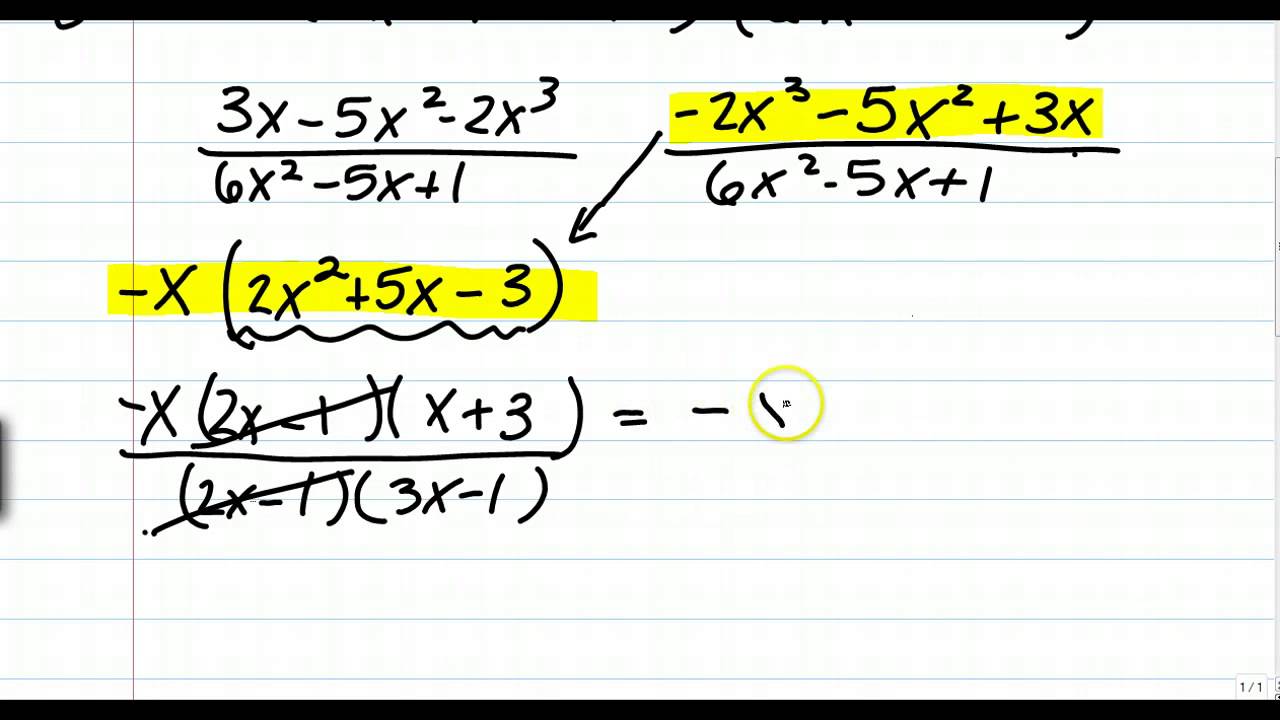 3x - 5x² - 2x³ / 6x² - 5x + 1    -2x³ - 5x² + 3x / 6x² - 5x + 1
-x (2x² + 5x - 3)
-x (2x - 1)(x + 3) / (2x - 1)(3x - 1) = -
1/1